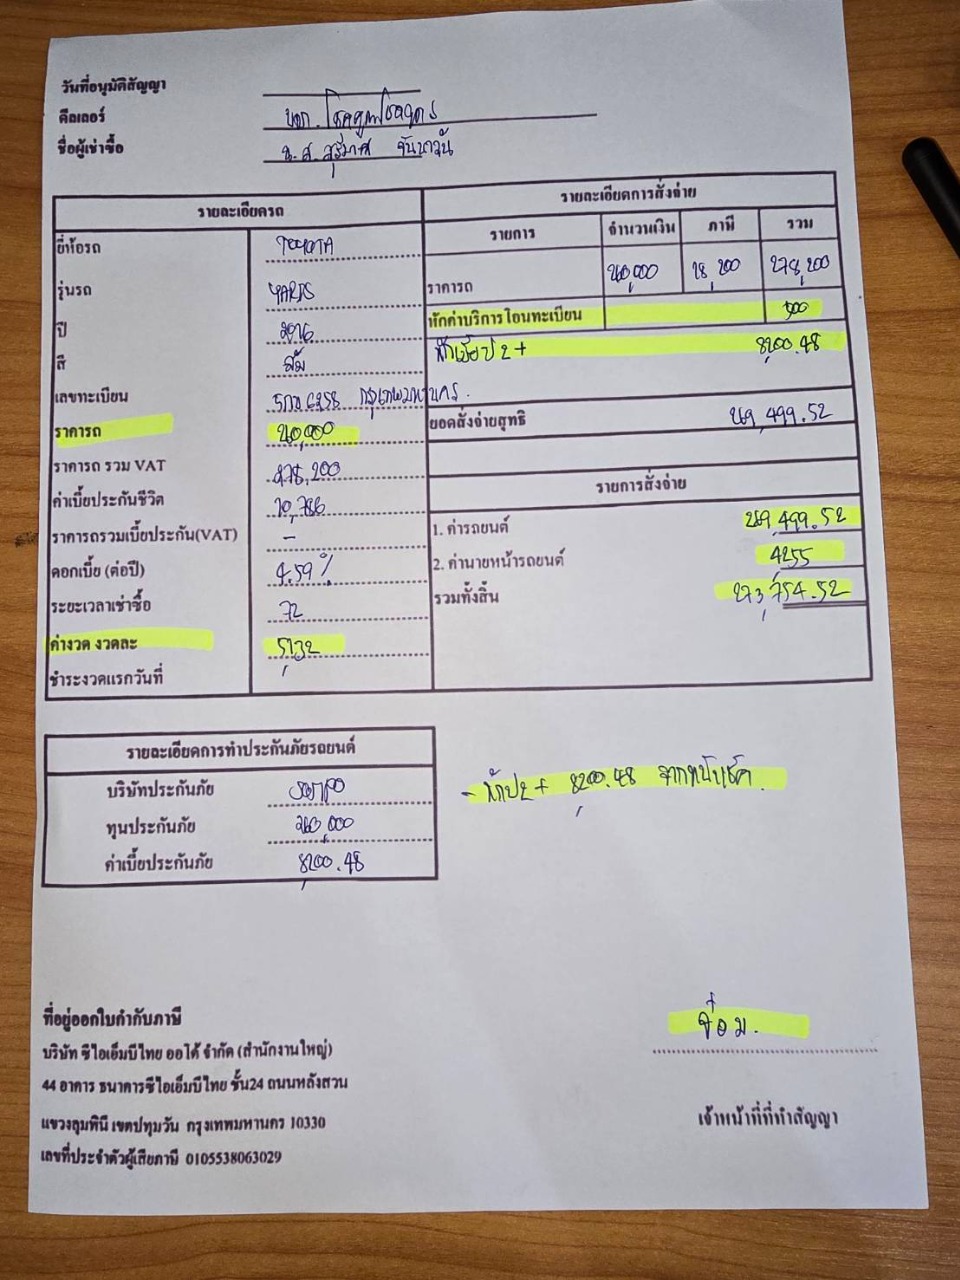 วันที่อนุมัติสัญญา
ดีลเลอร์ หจก. โชคคูณโชคถาวร
ชื่อผู้เช่าซื้อ น.ส.
รายละเอียดรถ
ยี่ห้อรถ TOYOTA
รุ่นรถ YARIS
ปี 2016
สี ส้ม
เลขทะเบียน 6258 กรุงเทพมหานคร
ราคารถ 260,000
ราคารถ รวม VAT 278,200
ค่าเบี้ยประกันชีวิต 10,786
ราคารถรวมเบี้ยประกัน(VAT) -
ดอกเบี้ย (ต่อปี) 4.59%
ระยะเวลาเช่าซื้อ 72
ค่างวด งวดละ 5,132
ชำระงวดแรกวันที่
รายละเอียดการสั่งจ่าย
รายการ จำนวนเงิน ภาษี รวม
ราคารถ 260,000 18,200 278,200
หักค่าบริการโอนทะเบียน 500
หักเบี้ยป2+ 8,200.48
ยอดสั่งจ่ายสุทธิ 269,499.52
รายการสั่งจ่าย
1. ค่ารถยนต์ 269,499.52
2. ค่านายหน้ารถยนต์ 4,255
รวมทั้งสิ้น 273,754.52
รายละเอียดการทำประกันภัยรถยนต์
บริษัทประกันภัย
ทุนประกันภัย 260,000
ค่าเบี้ยประกันภัย 8,200.48
- หักป2+ 8,200.48 จากหน้าเช็ค.
ที่อยู่ออกใบกำกับภาษี
บริษัท ซีไอเอ็มบีไทย ออโต้ จำกัด (สำนักงานใหญ่)
44 อาคาร ธนาคารซีไอเอ็มบีไทย ชั้น24 ถนนหลังสวน
แขวงลุมพินี เขตปทุมวัน กรุงเทพมหานคร 10330
เลขที่ประจำตัวผู้เสียภาษี 0105538063029
เจ้าหน้าที่ที่ทำสัญญา